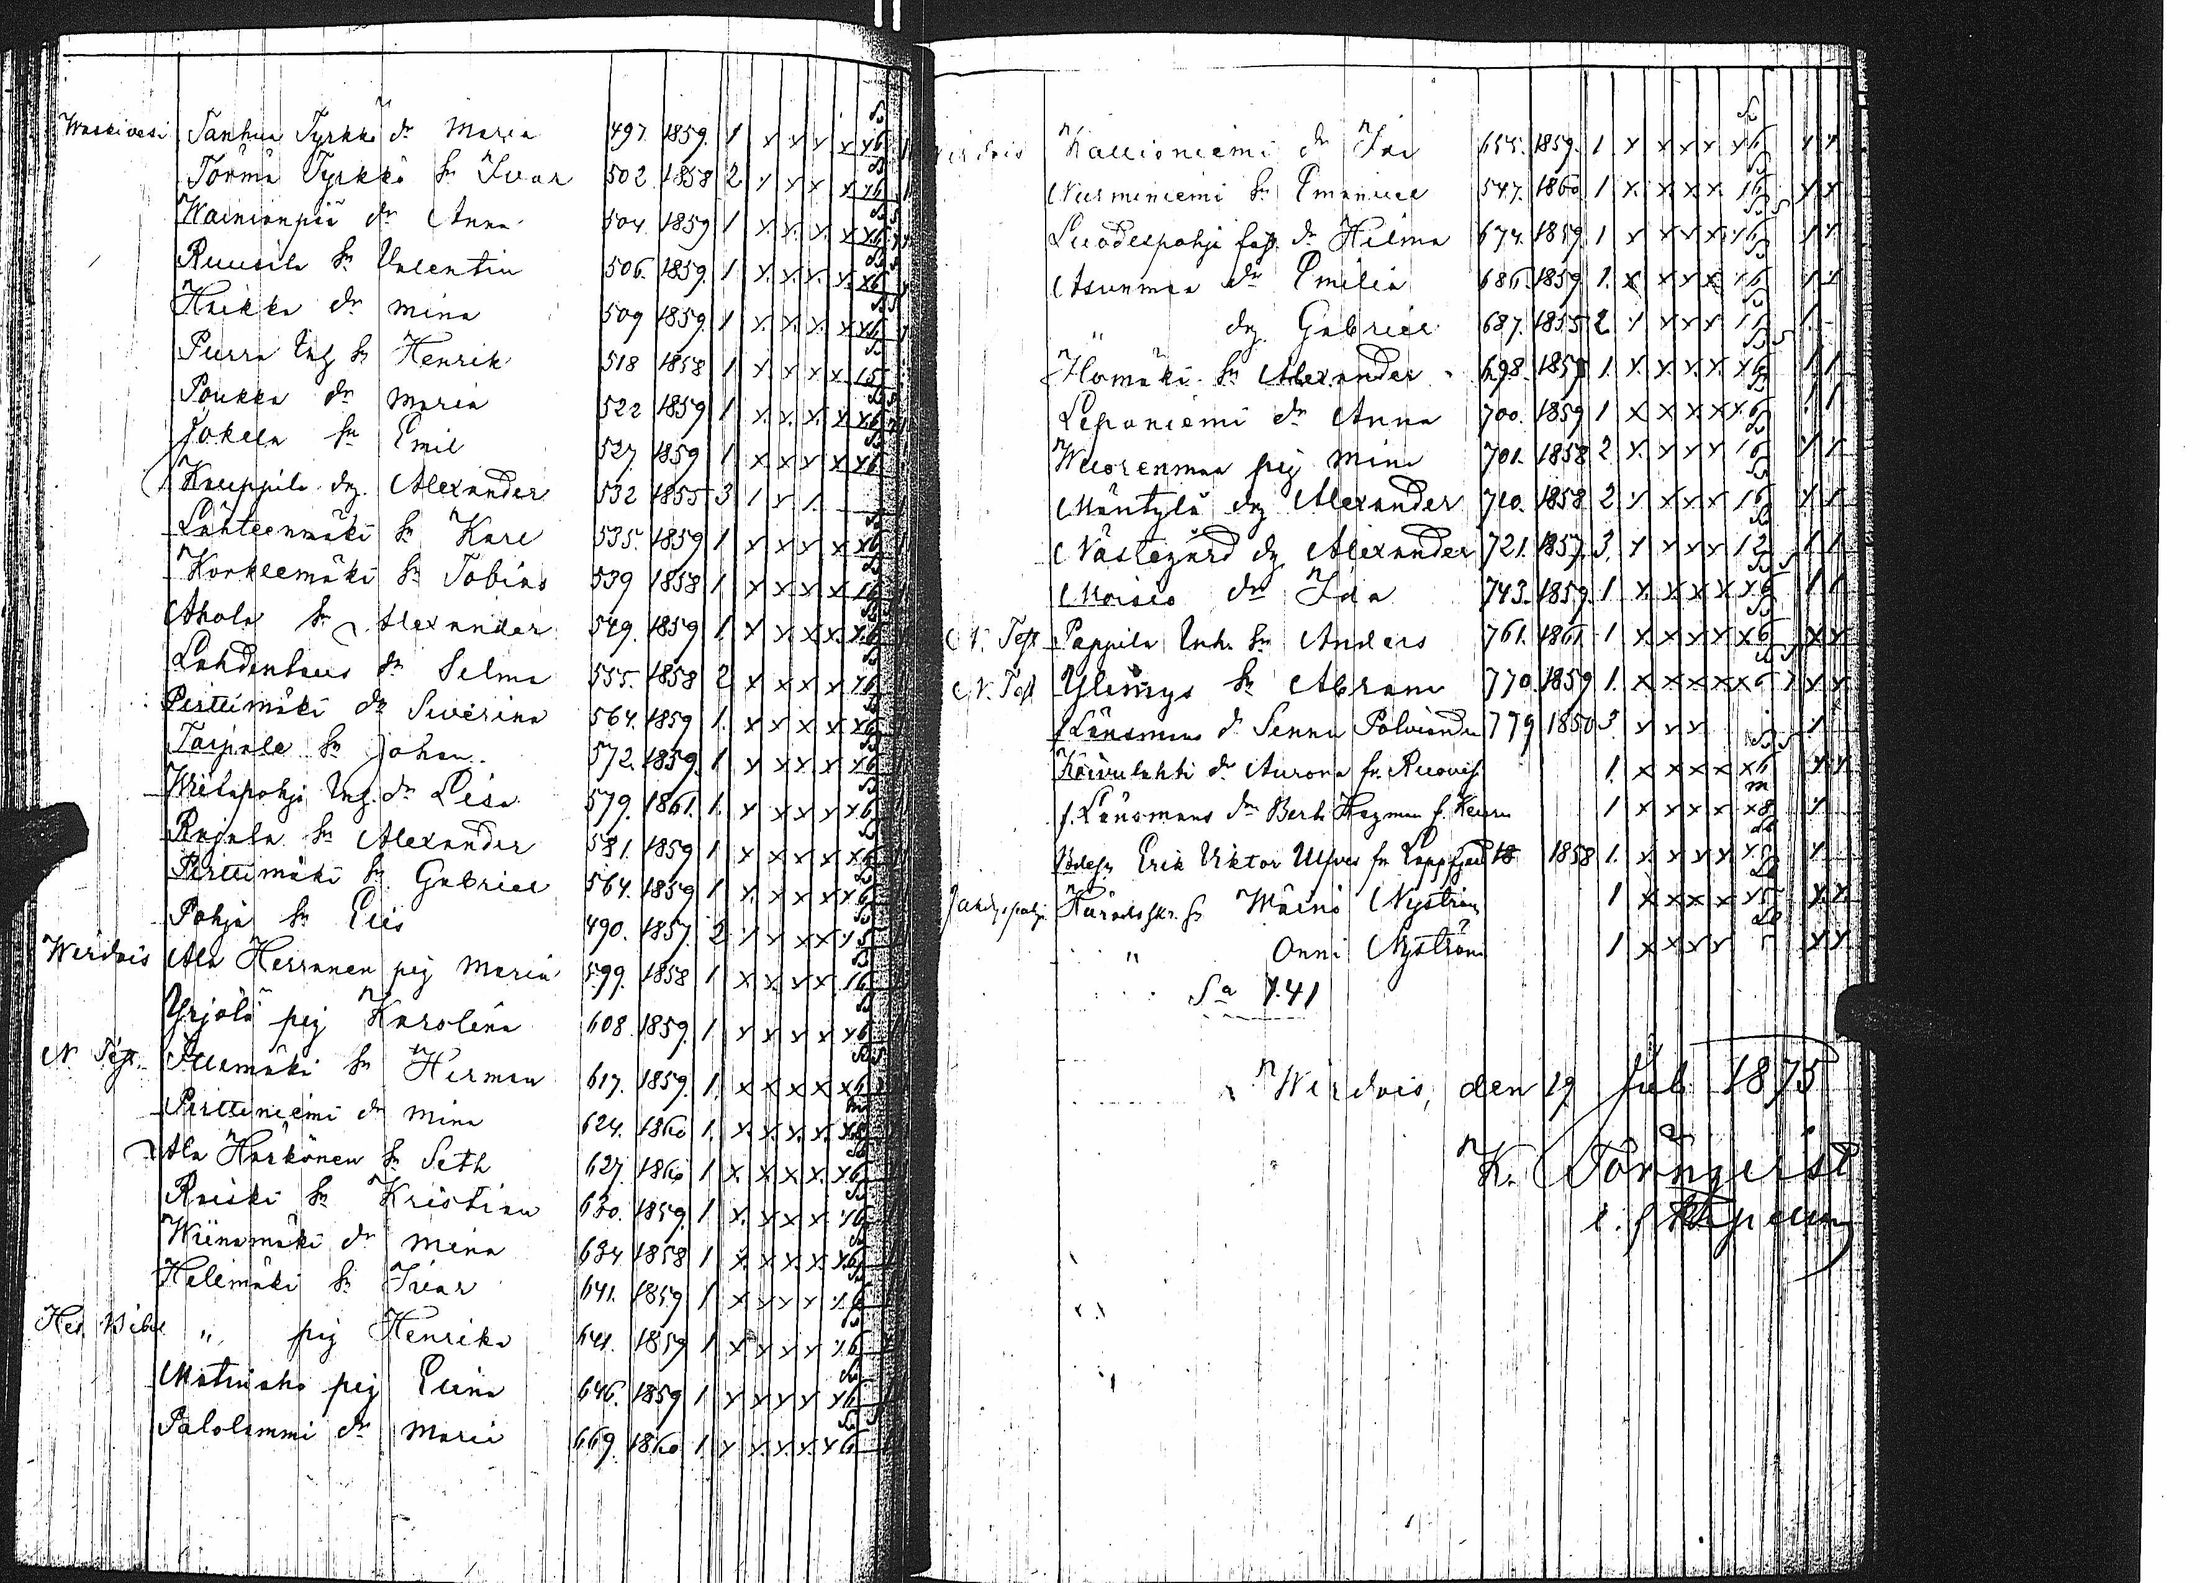 Waskivesi Tanhua Tyrkkö dr Maria 497. 1859. 1 x x x x x6
Törmä Tyrkkö Sn Ivar 502 1858 2 x x x x x6
Wainionpää dr Anna 504. 1859 1 x x x x x6
Ruusila Sn Valentin 506. 1859. 1 x x x x x6
Haikka dr Mina 509 1859. 1 x x x x x6
Purra Ung Sn Henrik 518 1858 1 x x x x 15
Poukka dr Maria 522 1859 1 x x x x x6
Jokela Sn Emil 527 1859 1 x x x x x6
Kauppila dg. Alexander 532 1855 3 1 x 1.
Lähteenmäki Sn Karl 535. 1859 1 x x x x x6
Korkeemäki Sn Tobias 539 1858 1 x x x x 16
Ahola Sn Alexander 549. 1859 1. x x x x x6
Lahdenhaus dr Selma 555. 1858 2 x x x x x6
Perttimäki dr Sewerina 564. 1859 1. x x x x x6
Taipale Sn Johan. 572. 1859. 1 x x x x x6
Wiitapohja Ung. dr Lisa 579. 1861. 1. x x x x x6
Rajala Sn Alexander 581. 1859 1 x x x x x6
Perttimäki Sn Gabriel 564. 1859 1 x x x x x6
Pohja Sn Elis 490. 1857. 2 1 x x x 15
Wirdois Ala Herranen pig Maria 599. 1858 1 x x x x 16
Yrjölä pig Karolina 608. 1859. 1. x x x x x6
N. Test. Ilemäki Sn Herman 617. 1859. 1. x x x x x6
Perttiniemi dr Mina 624. 1860 1. x x x x x8
Ala Härkönen Sn Seth 627. 1860 1 x x x x x6
Raiski Sn Kristian 630. 1859. 1 x x x x 16
Wiinamäki dr Mina 634 1858 1 x x x x x6
Helimäki Sn Ivar 641. 1859 1 x x x x x6
Hel. Bibel " pig Henrika 641. 1859 1 x x x x x6
Matinaho pig Eina 646. 1859 1 x x x x x6
Palolammi dr Maria 669. 1860 1. x x x x x6
Wirdois Kallioniemi dr Ida 655. 1859. 1 x x x x x6 x x
Nurminiemi Sn Emanuel 547. 1860 1 x x x x 16 x x
Luodespohja dr Hilma 674. 1859. 1 x x x x x6 x x
Asunmaa dr Emilia 686. 1859 1. x x x x x6 x x
" dg. Gabriel 687. 1855 2 x x x x 11 1.
Homäki Sn Alexander 698. 1859 1. x x x x x6 1 1
Lepaniemi dr Anna 700. 1859 1 x x x x x6 1 1
Wuorenmaa pig Mina 701. 1858 2. x x x x 16 x x
Mäntylä dg Alexander 710. 1858 2 x x x x 16 x x
Nästegård dg. Alexander 721. 1857. 3. x x x x 12 1 1
Moisio dr Ida 743. 1859. 1 x x x x x6 1 1
N. Test Pappila Inh. Sn Anders 761. 1861 1 x x x x x6 x x
N. Test Ylinys Sn Abram 770. 1859 1. x x x x x6 x x
f Länsmans dr Senna Polviander 779 1850 3. x x x 1
Koivulahti dr Aurora fr. Ruovesi 1. x x x x x6 x x
f. Länsmans dr Berta Hagman f. Keuru 1 x x x x x8 x
Erik Viktor Ulfves fr Lappfjerd 18 1858 1. x x x x x5 x
Häradsskr. Sn Wäinö Nyström 1 x x x x 15 x x
" Onni Nyström 1 x x x x x x
Sa 141
Wirdois, den 19 Juli 1875
K. Törnqvist